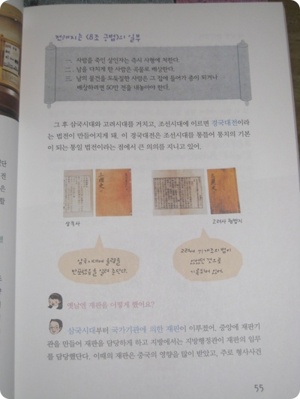 1. 사람을 죽인 살인자는 즉시 사형에 처한다.
2. 남을 다치게 한 사람은 곡물로 배상한다.
3. 남의 물건을 도둑질한 사람은 그 집에 들어가 종이 되거나
배상하려면 50만 전을 내놓아야 한다.
그 후 삼국시대와 고려시대를 거치고, 조선시대에 이르면 경국대전이라
는 법전이 만들어지게 돼. 이 경국대전은 조선시대를 통틀어 통치의 기본
이 되는 통일 법전이라는 점에서 큰 의의를 지니고 있어.
삼국사
고려사 형법지
옛날엔 재판을 어떻게 했어요?
삼국시대부터 국가기관에 의한 재판이 이루졌어. 중앙에 재판기
관을 만들어 재판을 담당하게 하고 지방에서는 지방행정관이 재판의 임무
를 담당했단다. 이때의 재판은 중국의 영향을 많이 받았고, 주로 형사사건
55